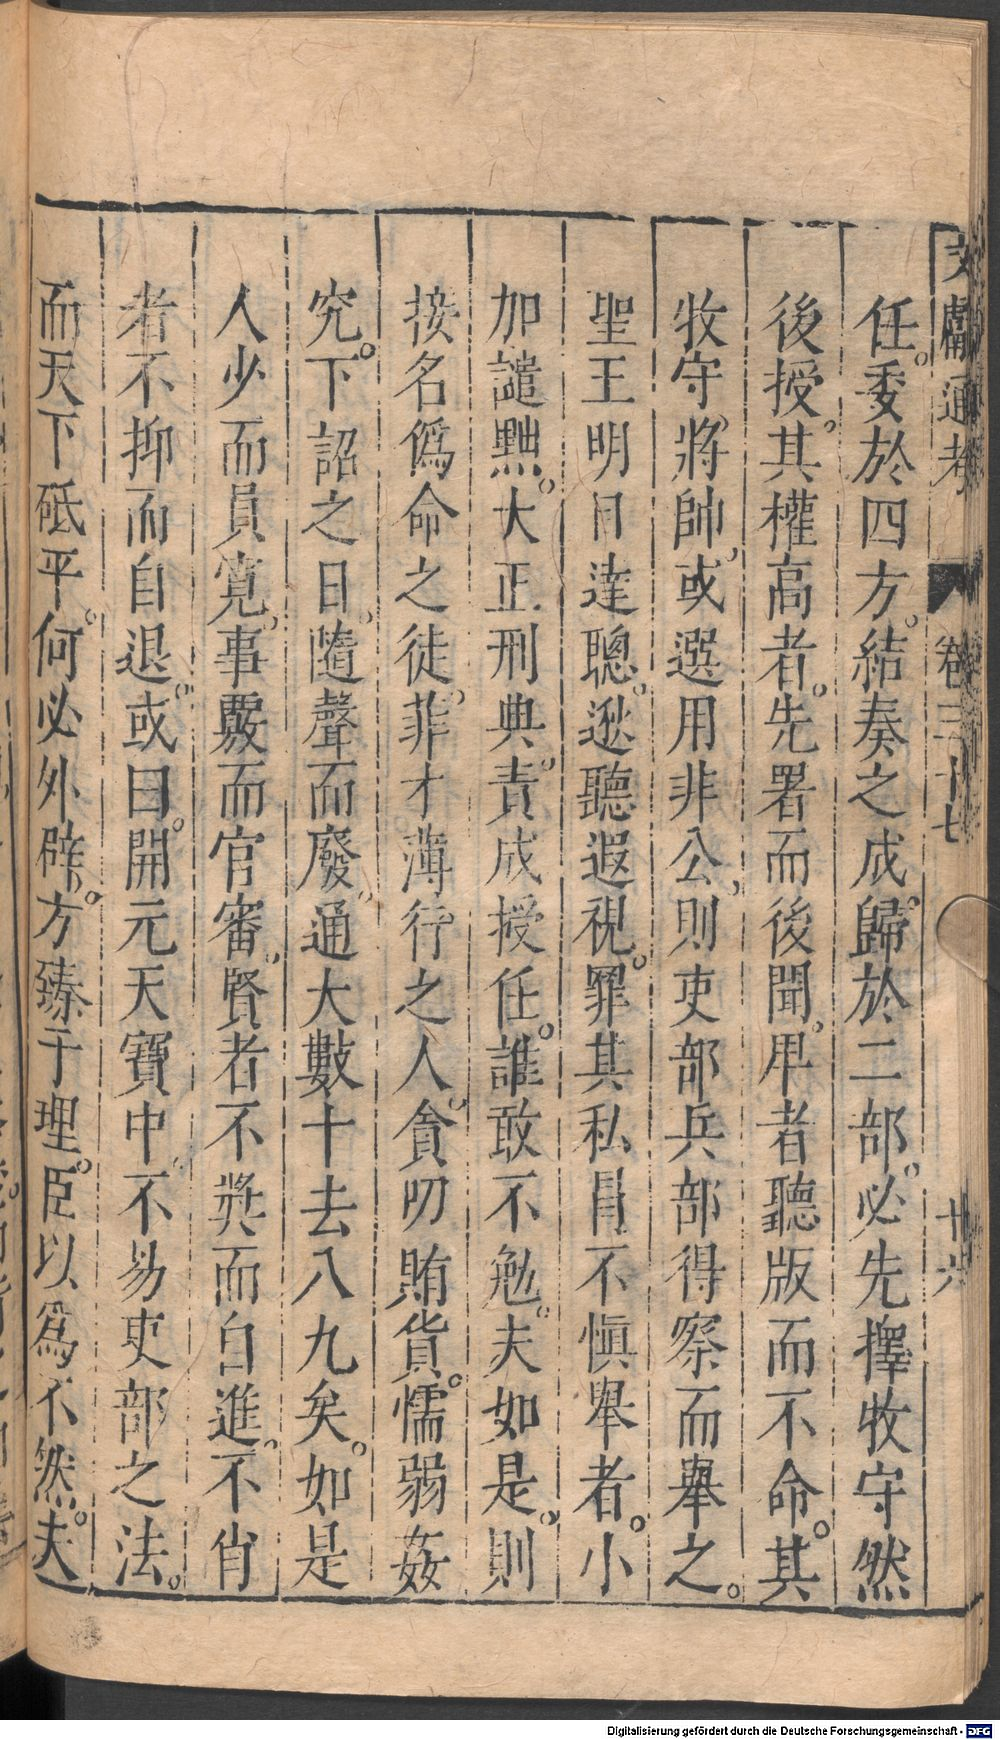 文獻通考 卷三十七 十六
任。委於四方。結奏之成。歸於二部。必先擇牧守然
後授。其權高者。先署而後聞。卑者聽版而不命。其
牧守、將帥、或選用非公、則吏部兵部得察而舉之。
聖王明目達聰。逖聽遐視。罪其私冒不慎舉者。小
加譴黜。大正刑典。責成授任。誰敢不勉。夫如是、則
接名僞命之徒、菲才薄行之人、貪叨賄貨。懦弱姦
宄。下詔之日、隨聲而廢。通大數十去八九矣。如是
人少而員寬、事覈而官審、賢者不奬而自進、不肖
者不抑而自退。或曰。開元天寶中、不易吏部之法。
而天下砥平。何必外辟。方臻于理。臣以爲不然。夫
Digitalisierung gefördert durch die Deutsche Forschungsgemeinschaft - DFG